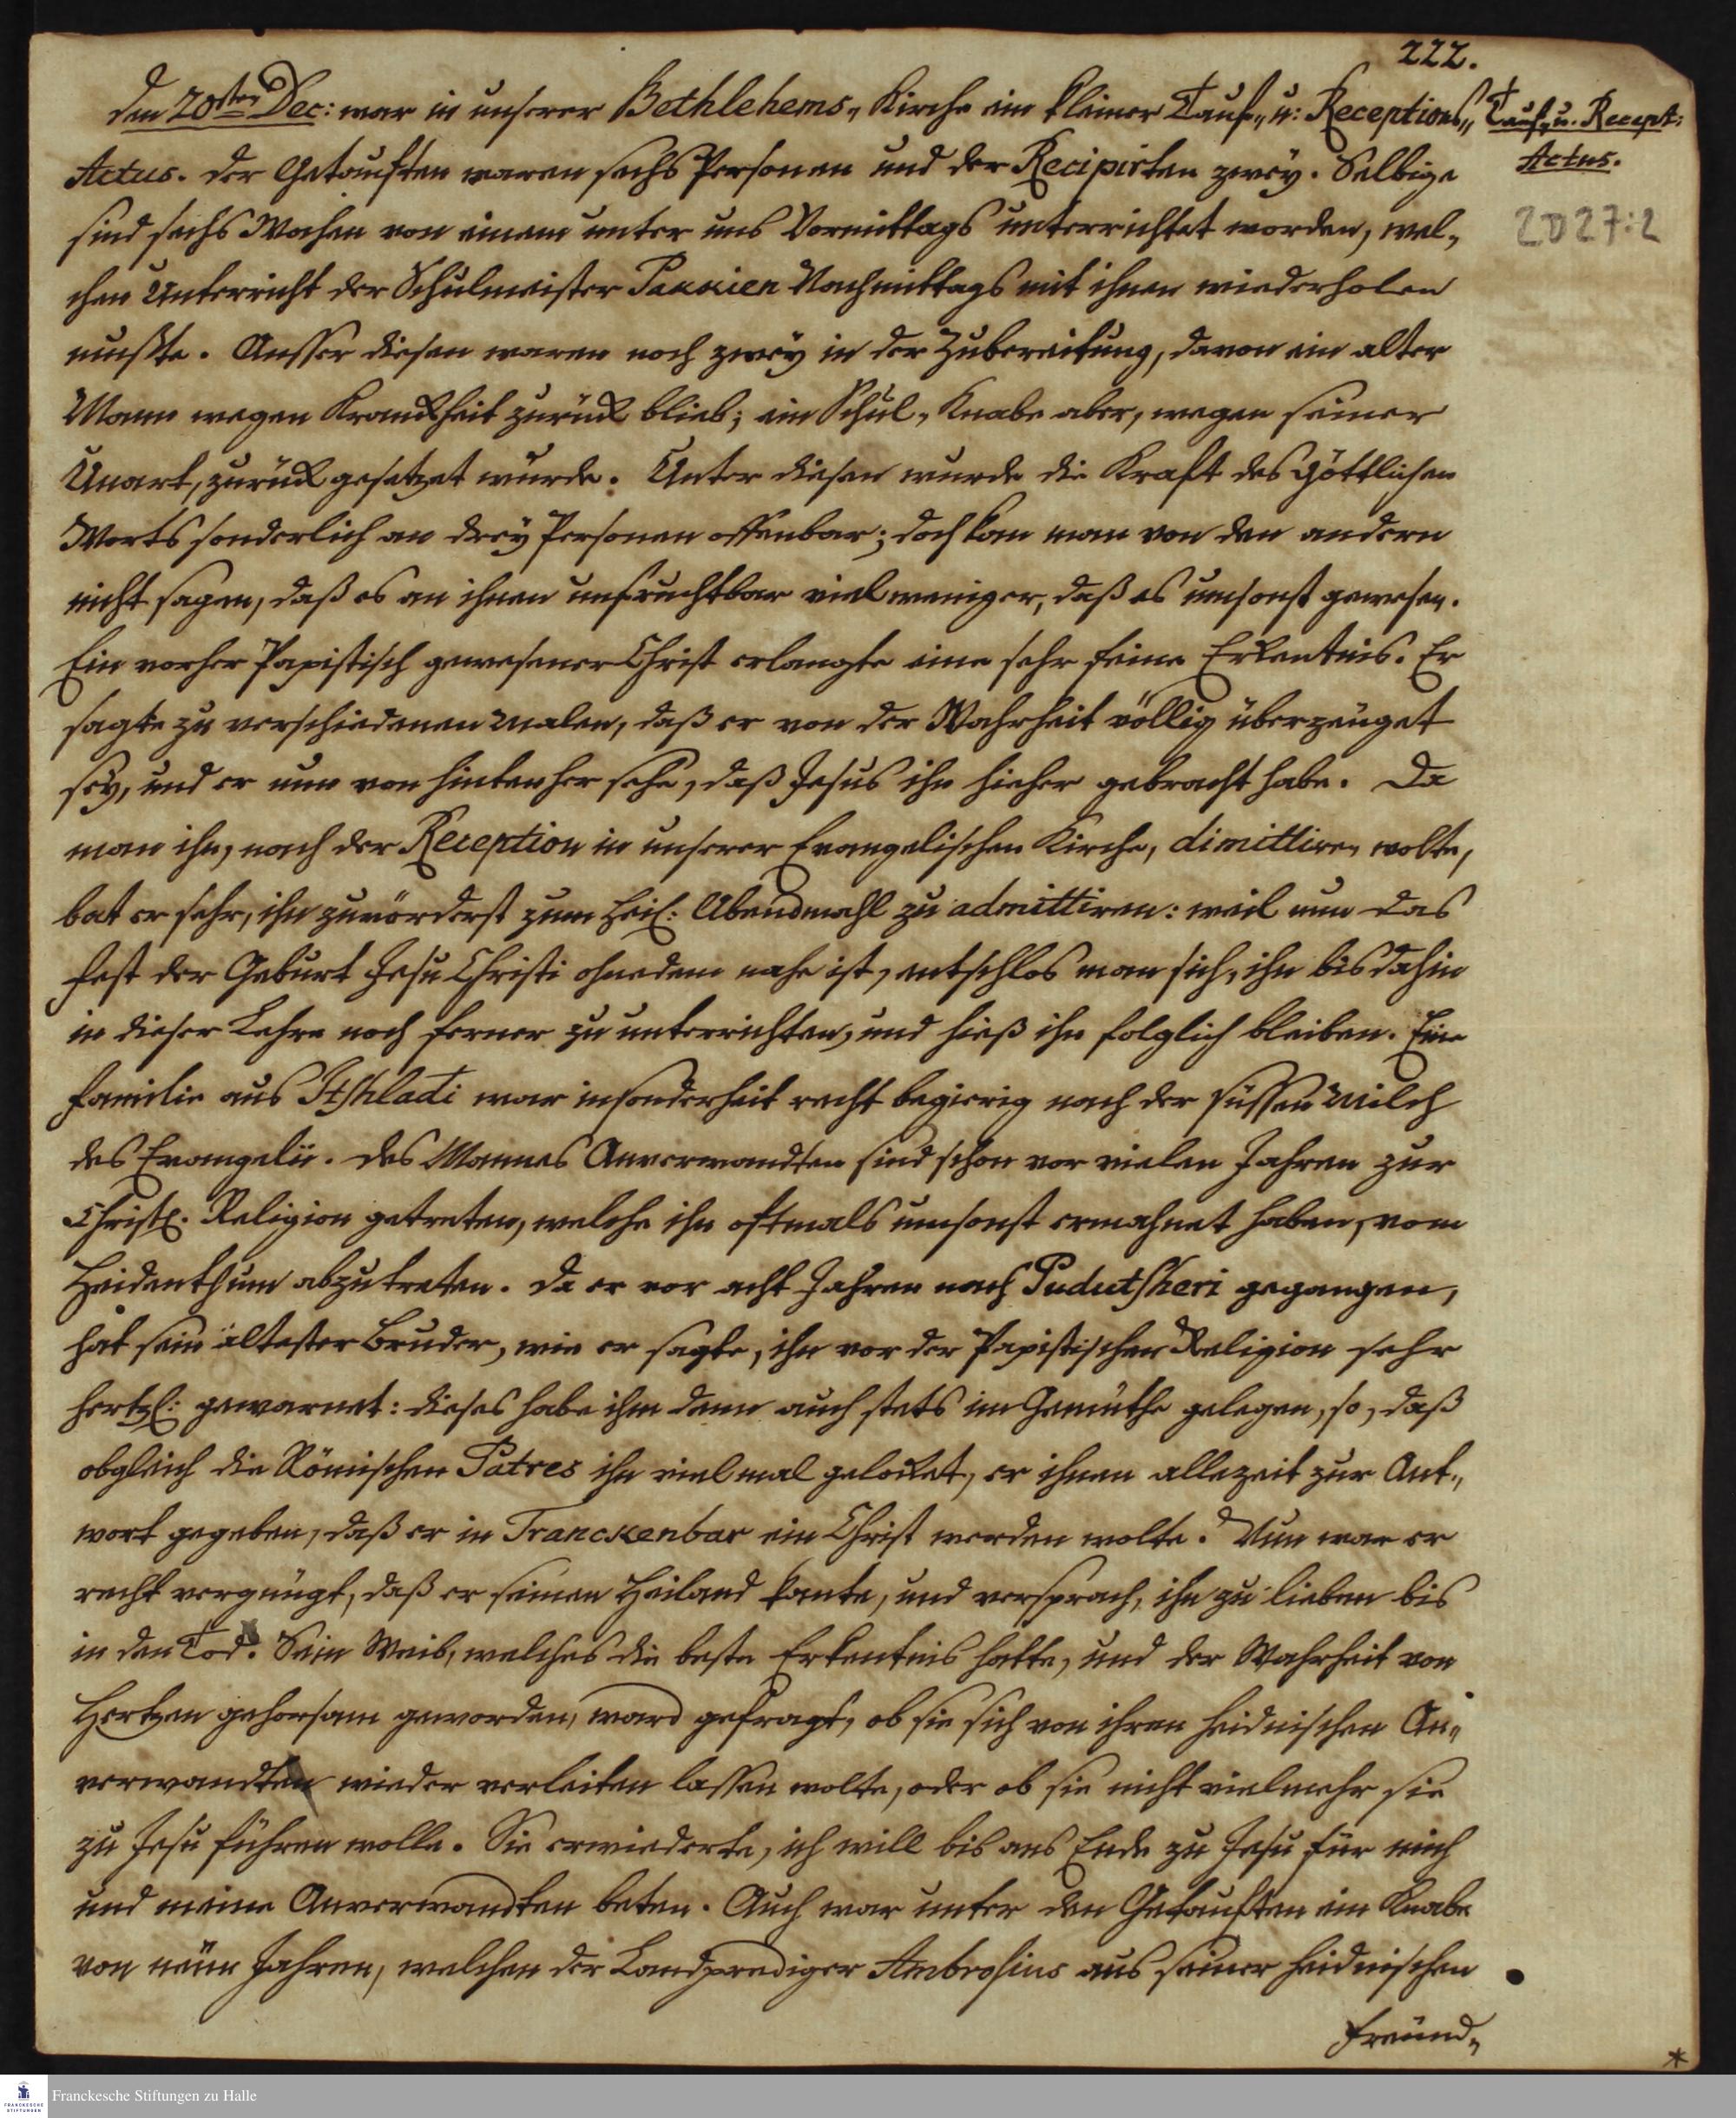 222.
den 20sten Dec: war in unserer Bethlehems„ Kirche ein kleiner Tauf„ u: Receptions„
Tauf„ u. Recept:
Actus.
2027:2
Actus. der Getauften waren sechs Personen und der Recipirten zwey. Selbige
sind sechs Wochen von einem unter uns Vormittags unterrichtet worden, wel„
chen Unterricht der Schulmeister Pakkien Nachmittags mit ihnen wiederholen
mußte. Ausser diesen waren noch zwey in der Zubereitung, davon ein alter
Mann wegen Kranckheit zurück blieb; ein Schul„ Knabe aber, wegen seiner
Unart, zurück gesetzet wurde. Unter diesen wurde die Kraft des Göttlichen
Worts sonderlich an drey Personen offenbar; doch kan man von den andern
nicht sagen, daß es an ihnen unfruchtbar vielweniger, daß es umsonst gewesen.
Ein vorher Papistisch gewesener Christ erlangte eine sehr feine Erkentnis. Er
sagte zu verschiedenen malen, daß er von der Wahrheit völlig überzeuget
sey, und er nun von hintenher sehe, daß Jesus ihn hieher gebracht habe. Da
man ihn, nach der Reception in unserer Evangelischen Kirche, dimittiren wolte,
bat er sehr, ihn zuvörderst zum Heil: Abendmahl zu admittiren: weil nun das
Fest der Geburt Jesu Christi ohnedem nahe ist, entschlos man sich, ihn bis dahin
in dieser Lehre noch ferner zu unterrichten, und hieß ihn folglich bleiben. Eine
Familie aus Itshladi war insonderheit recht begierig nach der süssen Milch
des Evangelii. des Mannes Anverwandten sind schon vor vielen Jahren zur
Christl. Religion getreten, welche ihn oftmals umsonst ermahnet haben, vom
Heidenthum abzutreten. da er vor acht Jahren nach Pudutsheri gegangen,
hat sein ältester Bruder, wie er sagte, ihn vor der Papistischen Religion sehr
hertzl: gewarnet: dieses habe ihm denn auch stets im Gemüthe gelegen, so, daß
obgleich die Römischen Patres ihn vielmal gelocket, er ihnen allezeit zur Ant„
wort gegeben, daß er in Tranckenbar ein Christ werden wolte. Nun war er
recht vergnügt, daß er seinen Heiland kante, und versprach, ihn zu lieben bis
in den Tod. Sein Weib, welches die beste Erkentnis hatte, und der Wahrheit von
Hertzen gehorsam geworden, ward gefragt, ob sie sich von ihren heidnischen An„
verwandten wieder verleiten lassen wolte, oder ob sie nicht vielmehr sie
zu Jesu führen wolle. Sie erwiederte, ich will bis ans Ende zu Jesu für mich
und meine Anverwandten beten. Auch war unter den Getauften ein Knabe
von neün Jahren, welchen der Landprediger Ambrosius aus seiner heidnischen
Freünd„
Franckesche Stiftungen zu Halle
FRANCKESCHE
STIFTUNGEN